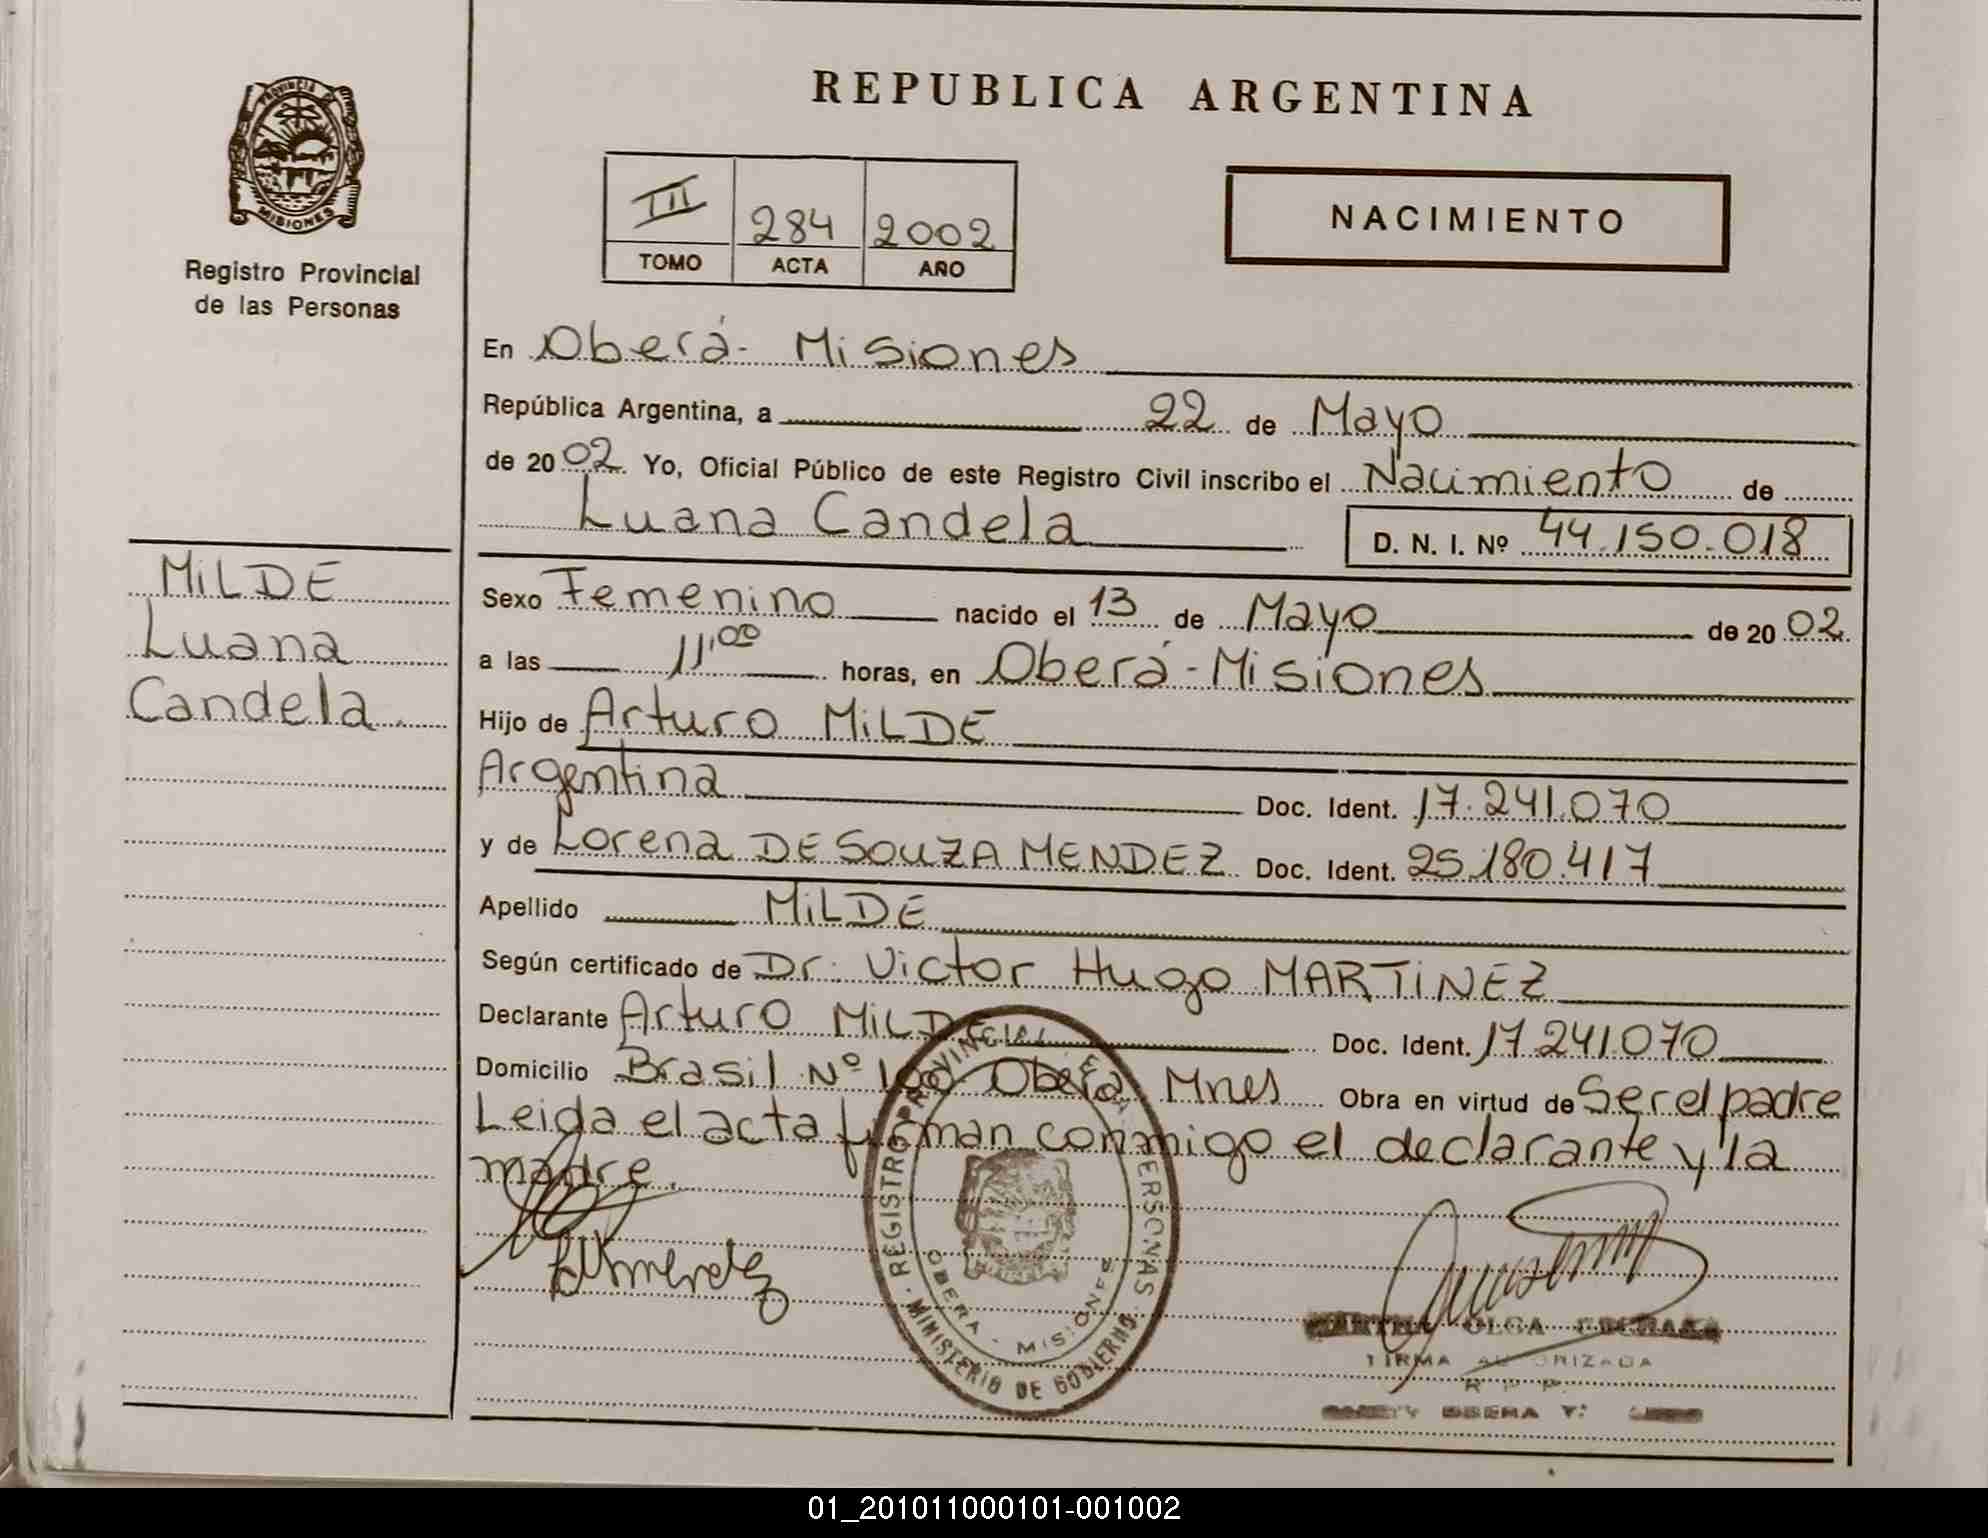 REPUBLICA ARGENTINA
PROVINCIA DE
MISIONES
Registro Provincial
de las Personas
III 284 2002
TOMO ACTA AÑO
NACIMIENTO
En Oberá - Misiones
República Argentina, a 22 de Mayo
de 2002. Yo, Oficial Público de este Registro Civil inscribo el Nacimiento de
Luana Candela D. N. I. Nº 44.150.018
MILDE
Luana
Candela.
Sexo Femenino nacido el 13 de Mayo de 2002.
a las 11,00 horas, en Oberá - Misiones
Hijo de Arturo MILDE
Argentina Doc. Ident. 17.241.070
y de Lorena DE SOUZA MENDEZ Doc. Ident. 25.180.417
Apellido MILDE
Según certificado de Dr. Victor Hugo MARTINEZ
Declarante Arturo MILDE Doc. Ident. 17.241.070
Domicilio Brasil Nº Oberá, Mnes Obra en virtud de Ser el padre
Leida el acta firman conmigo el declarante y la
madre.
REGISTRO PROVINCIAL PERSONAS
OBERA - MISIONES
MINISTERIO DE GOBIERNO
OLGA
FIRMA AUTORIZADA
R. P. P.
OBERA
01_201011000101-001002